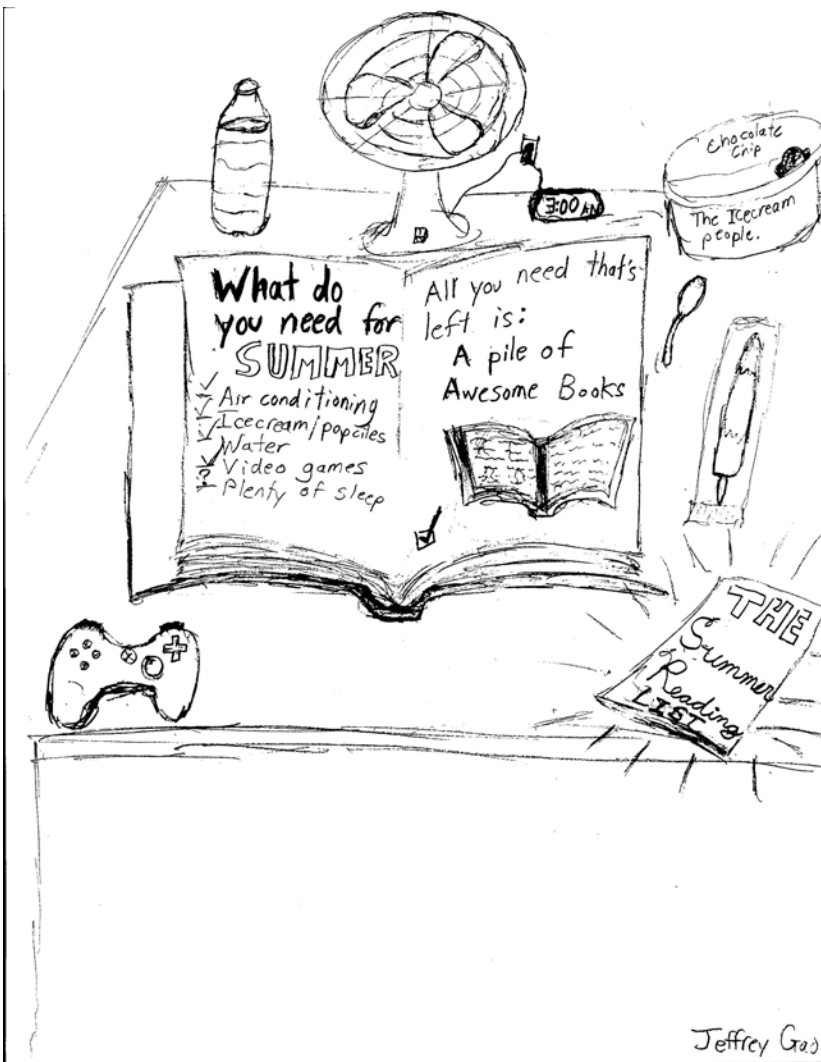 Chocolate
Chip
The Icecream
people.
3:00 AM
What do
you need for
SUMMER
Air conditioning
Icecream/popciles
Water
Video games
? Plenty of sleep
All you need that's
left is:
A pile of
Awesome Books
THE
Summer
Reading
LIST
Jeffrey Gao